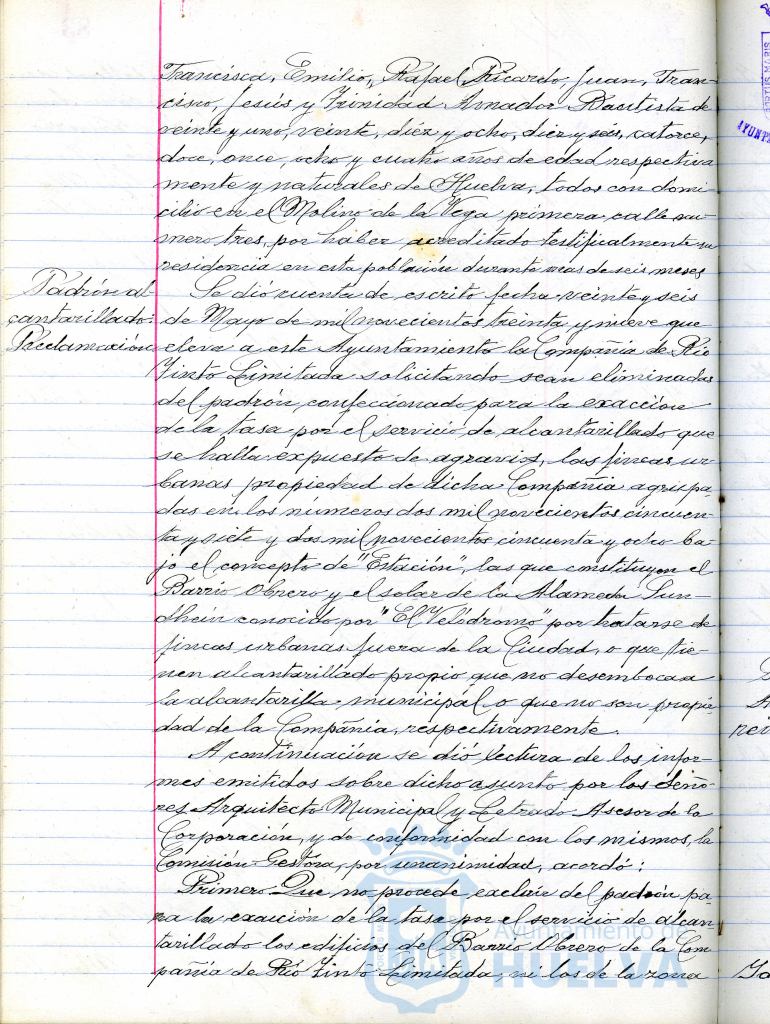 Francisca, Emilio, Rafael, Ricardo, Juan, Fran-
cisco, Jesús y Trinidad Amador Bautista de
veinte y uno, veinte, diez y ocho, diez y seis, catorce,
doce, once, ocho y cuatro años de edad respectiva
mente y naturales de Huelva, todos con domi
cilio en el Molino de la Vega primera calle nu-
mero tres, por haber acreditado testificalmente su
residencia en esta población durante mas de seis meses
Padrón al-
cantarillado.
Reclamación
Se dió cuenta de escrito fecha veinte y seis
de Mayo de mil novecientos treinta y nueve que
eleva a este Ayuntamiento la Compañia de Rio
Tinto Limitada solicitando sean eliminadas
del padrón confeccionado para la exacción
de la tasa por el servicio de alcantarillado que
se halla expuesto de agravios, las fincas ur
banas propiedad de dicha Compañia agrupa
das en los números dos mil novecientos cincuen
ta y siete y dos mil novecientos cincuenta y ocho ba-
jo el concepto de "Estación", las que constituyen el
Barrio Obrero y el solar de la Alameda Sun-
dhein conocido por "El Velódromo" por tratarse de
fincas urbanas fuera de la Ciudad, o que tie-
nen alcantarillado propio que no desemboca a
la alcantarilla municipal o que no son propie
dad de la Compañia, respectivamente.
A continuación se dió lectura de los infor-
mes emitidos sobre dicho asunto por los Seño-
res Arquitecto Municipal y Letrado Asesor de la
Corporación, y de conformidad con los mismos, la
Comisión Gestora, por unanimidad, acordó:
Primero Que no procede excluir del padrón pa
ra la exacción de la tasa por el servicio de alcan
tarillado los edificios del Barrio Obrero de la Com
pañia de Rio Tinto Limitada, ni los de la zona
Ayuntamiento de
HUELVA